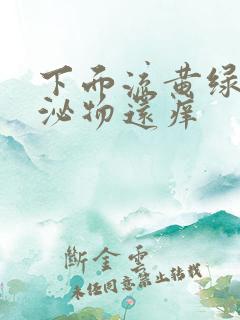 下而流黄绿
泌物还痒
断金云
未经同意禁止转载